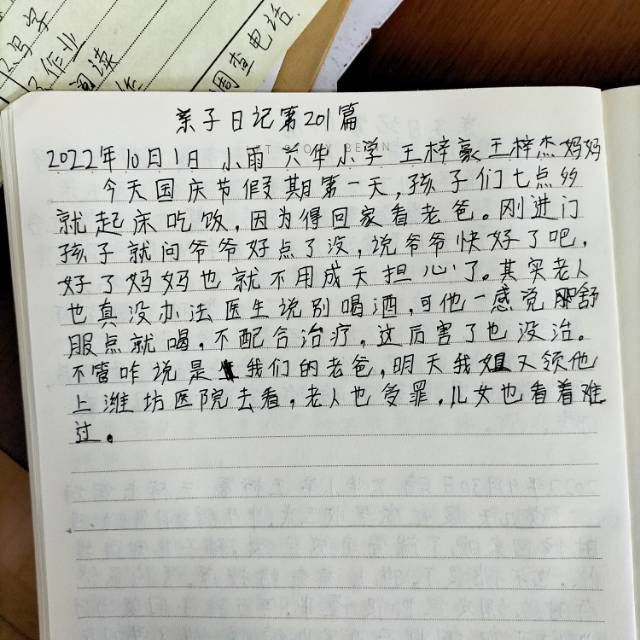 写字
作业
阅读
调查电话
亲子日记第201篇
2022年10月1日 小雨 六年小学 王梓豪王梓杰妈妈
今天国庆节假期第一天,孩子们七点多
就起床吃饭,因为得回家看老爸。刚进门
孩子就问爷爷好点了没,说爷爷快好了吧,
好了妈妈也就不用成天担心了。其实老人
也真没办法医生说别喝酒,可他一感觉舒
服点就喝,不配合治疗,这厉害了也没治。
不管咋说是我们的老爸,明天我姐又领他
上潍坊医院去看,老人也受罪,儿女也看着难
过。